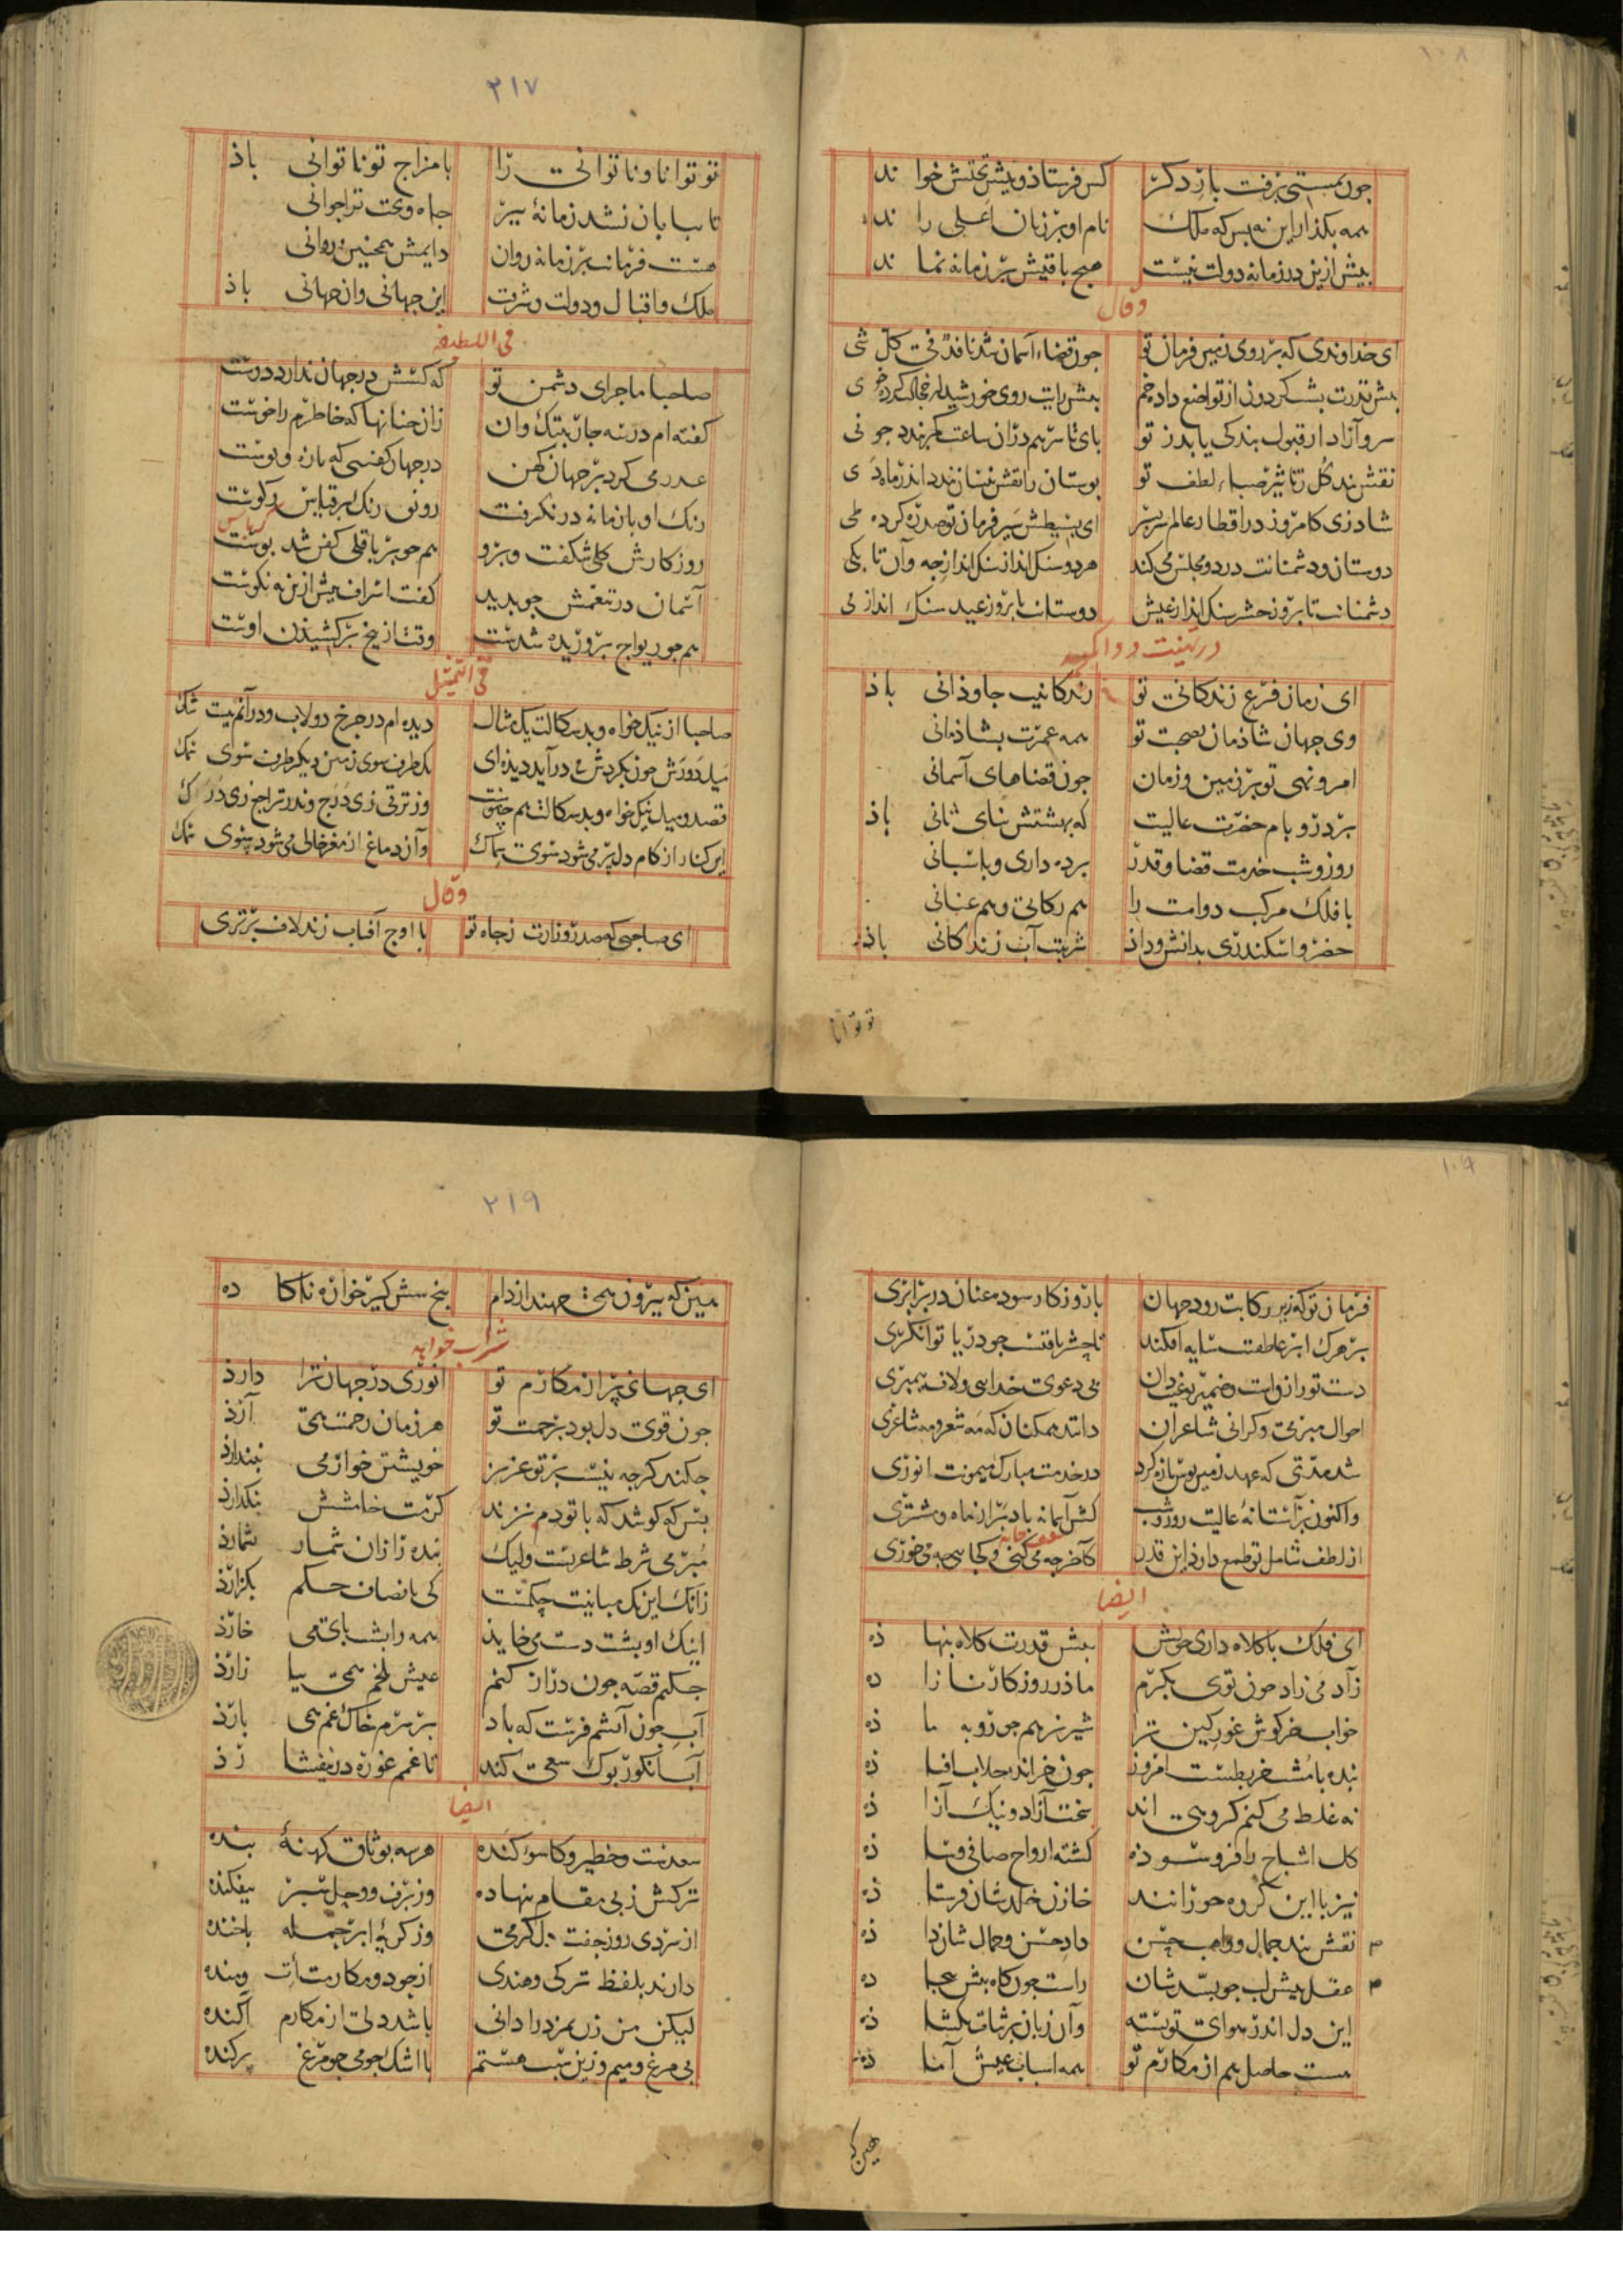 ۱۰۸
جون بمستی برفت بار دکر کس فرستاد و پیش تختش خوا ند
همه بکذار این نه بس که ملک نام او بر زبان اعلی را ند
بیش ازین در زمانه دولت نیست هیچ باقیش بر زمانه نما ند
وقال
ای خداوندی که بر روی زمین فرمان تو جون قضاء آسمان شد نافذ فی کل شی
پیش قدرت پشت کردون از تواضع داده خم پیش رایت روی خورشید از خجالت کرده خوی
سرو آزاد ار قبول بندکی یابد ز تو پای تا سر هم در آن ساعت کمر بندد جو نی
نقش بند کل ز تاثیر صباء لطف تو بوستان را نقش نیسان بندد اندر ماه دی
شاد زی کامروز در اقطار عالم سربسر ای بسیطش سیر فرمان تو صد ره کرده طی
دوستان و دشمنانت در دو مجلس می کند هر دو سنک انداز سنک انداز جه وآن تا بکی
دشمنانت تا بروز حشر سنک انداز عیش دوستانت تا بروز عید سنک انداز می
در تهنیت و دوا کوید
ای زمان فرع زندکانی تو زندکانیت جاوذانی باذ
وی جهان شاذمان بصحبت تو همه عمرت بشاذمانی
امر و نهی تو بر زمین و زمان جون قضاهای آسمانی
بر در و بام حضرت عالیت که بهشتش بنای ثانی باذ
روز و شب خدمت قضا و قدر برده داری و باسبانی
با فلک مرکب دوامت را هم رکابی و هم عنانی
خضر و اسکندری بدانش و داذ شربت آب زندکانی باذ
تو توانا
۲۱۷
تو توانا و ناتوانی را با مزاج تو ناتوانی باذ
تا ببایان نشد زمانهٔ پیر جاه و بخت ترا جوانی
هست فرمانت بر زمانه روان دایمش همجنین روانی
ملک و اقبال و دولت و شرفت این جهانی و ان جهانی باذ
فی اللطیفه
صاحبا ماجرای دشمن تو که کسش در جهان ندارد دوست
کفته ام در سه جار بیتک وان زان جنانها که خاطرم را خوست
عذر می کرد بر جهان کهن در جهان کفنسی که باره و بوست
رنک او با زمانه در نکرفت رونق رنک بر قیاس رکوست
کرباس
روزکارش کلی شکفت و برو هم جو بر باقلی کفن شد بوست
آسمان در تنعمش جو بدید کفت اسراف بیش ازین نه نکوست
هم جو ریواج بروریده شدست وقت از بیخ برکشیذن اوست
فی التمثیل
صاحبا از نیک خواه و بدسکالت یک مثال دیده ام در جرخ دولاب و در آنم نیست شک
میل دورش جون بکردش در آید دیده ای یک طرف سوی زمین دیکر طرف سوی فلک
قصد و میل نیک خواه و بدسکالت هم جنین وز ترقی زی درج وندر تراجع زی درک
این کنار از کام دل بر می شود سوی سماک وآن دماغ از مغز خالی می شود سوی سمک
وقال
ای صاحبی که صدر وزارت ز جاه تو با اوج آفتاب زند لاف برتری
۱۰۹
فرمان تو که زیر رکابت رود جهان با روزکار سوده عنان در برابری
بر هرک ابر عاطفتت سایه افکند تا حشر یافتست جو دریا توانکری
دست تو رازقست و ضمیر تو غیب دان بی دعوی خدایی و لاف بیمبری
احوال میزبخی و کرانی شاعران دانند همکنان که نه شعر و نه شاعری
شد مدتی که عهد زمین بوس تازه کرد در خدمت مبارک میمونت انوری
واکنون بر آستانهٔ عالیت روز و شب کش آسمانه باد بر از ماه و مشتری
از لطف شامل تو طمع دارد این قدر کآخر جه می کنی و کجایی جه می خوری
ایضا
ای فلک با کلاه داری خویش پیش قدرت کلاه بنها ذه
زآدمی زاد جون تو یک مکرم ماذر روزکار نازا ده
خواب خرکوش غور کین ترا شیر نر هم جو روبه ما ذه
بنده با مشت خربطست امروز جون خر اندر خلاب افتا ذه
نه غلط می کنم کروهی اند سخت آزاد و نیک آزا ذه
کل اشباح را فرو سو ذه کشته ارواح صافی و سا ذه
نیز با این کروه حورانند خازن خلدشان فرستا ذه
نقش بند جمال و واهب حسن داد حسن و جمال شان دا ذه
عقل بیش لب جو بسدشان راست جون کاه بیش بیجا ده
این دل اندر هوای تو بسته وآن زبان بر ثنات بکشا ذه
هست حاصل هم از مکارم تو همه اسباب عیش آما ذه
هین که
۲۱۹
هین که بیرون همی جهند از دام بنج سش کیر خواره ناکا ده
شراب خواهد
ای جهانی بر از مکارم تو انوری در جهان ترا دارذ
جون قوی دل بود برحمت تو هر زمان زحمتت همی آرذ
جکند کرجه نیست بر تو عزیز خویشتن خوار می نبندارذ
بس که کوشد که با تو دم نزند کرمت خامشش نکذارذ
مبرمی شرط شاعریست ولیک بنده زان شمار نشمارذ
زانک این یک مباینت جکمست کی بانصاف حکم بکزارذ
اینک او بشت دست می خاید همه را بشت بای می خارذ
جکنم قصه جون دراز کنم عیش تلخم همی بیا زارذ
آب جون آتشم فرست که باد بر سرم خاک غم همی بارذ
آب انکور بوک سعی کند تا غمم غوره در نیفشا رذ
ایضا
سعدست و خطیر و کاسوکنده هر سه بوثاق کهنهٔ بنده
ترکش ز بی مقام بنهاده وز برف و وحل سبر بیفکنده
از سردی روز جفت دل کرمی وز کریهٔ ابر جمله باخنده
دارند بلفظ ترکی و هندی از جود و مکارمت ومنده
لیکن من زن بمزد را دانی باشد دلی از مکارم آکنده
بی مرغ و میم و زین سبب هستم با اشک جو می جو مرغ برکنده